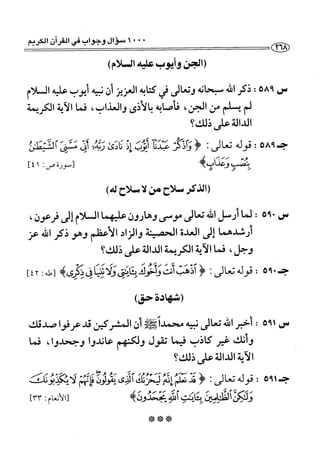 ١٠٠٠ سؤال وجواب في القرآن الكريم
٢٦٨
(الجن وأيوب عليه السلام)
س ٥٨٩ : ذكر الله سبحانه وتعالى في كتابه العزيز أن نبيه أيوب عليه السلام
لم يسلم من الجن، فأصابه بالأذى والعذاب، فما الآية الكريمة
الدالة على ذلك؟
جـ ٥٨٩ : قوله تعالى : ﴿ وَاذْكُرْ عَبْدَنَا أَيُّوبَ إِذْ نَادَىٰ رَبَّهُ أَنِّي مَسَّنِيَ الشَّيْطَانُ
بِنُصْبٍ وَعَذَابٍ ﴾ [سورة ص: ٤١]
(الذكر سلاح من لا سلاح له)
س ٥٩٠ : لما أرسل الله تعالى موسى وهارون عليهما السلام إلى فرعون،
أرشدهما إلى العدة الحصينة والزاد الأعظم وهو ذكر الله عز
وجل، فما الآية الكريمة الدالة على ذلك؟
جـ ٥٩٠ : قوله تعالى : ﴿ اذْهَبْ أَنتَ وَأَخُوكَ بِآيَاتِي وَلَا تَنِيَا فِي ذِكْرِي ﴾ [طه: ٤٢]
(شهادة حق)
س ٥٩١ : أخبر الله تعالى نبيه محمداً ﷺ أن المشركين قد عرفوا صدقك
وأنك غير كاذب فيما تقول ولكنهم عاندوا وجحدوا، فما
الآية الدالة على ذلك؟
جـ ٥٩١ : قوله تعالى : ﴿ قَدْ نَعْلَمُ إِنَّهُ لَيَحْزُنُكَ الَّذِي يَقُولُونَ فَإِنَّهُمْ لَا يُكَذِّبُونَكَ
وَلَٰكِنَّ الظَّالِمِينَ بِآيَاتِ اللَّهِ يَجْحَدُونَ ﴾ [الأنعام: ٣٣]
***